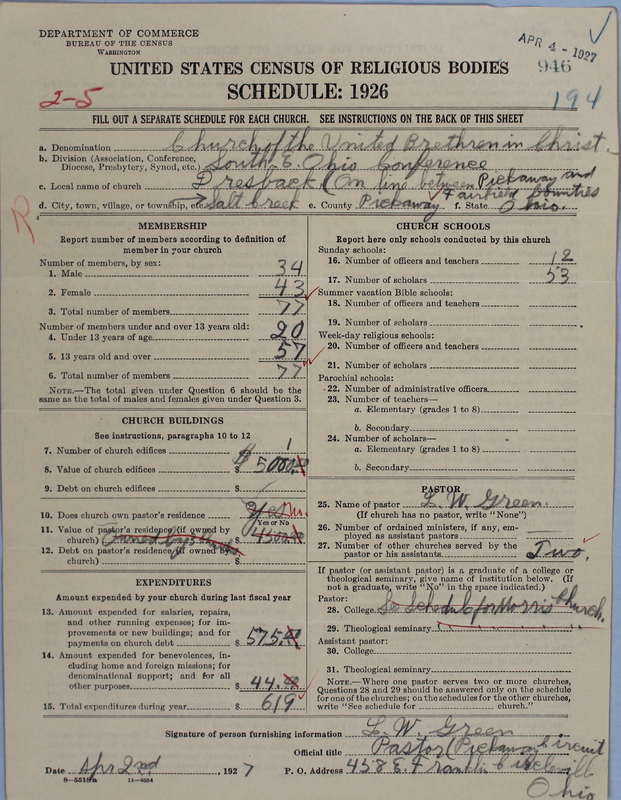 DEPARTMENT OF COMMERCE
BUREAU OF THE CENSUS
WASHINGTON
APR 4 - 1927
946
UNITED STATES CENSUS OF RELIGIOUS BODIES
SCHEDULE: 1926
2-5
194
FILL OUT A SEPARATE SCHEDULE FOR EACH CHURCH. SEE INSTRUCTIONS ON THE BACK OF THIS SHEET
a. Denomination Church of the United Brethren in Christ.
b. Division (Association, Conference, Diocese, Presbytery, Synod, etc.) South E. Ohio Conference
c. Local name of church Dresback (On line between Pickaway and Fairfield Counties
d. City, town, village, or township, etc. Salt Creek e. County Pickaway f. State Ohio.
R
MEMBERSHIP
Report number of members according to definition of
member in your church
Number of members, by sex:
1. Male 34
2. Female 43
3. Total number of members 77
Number of members under and over 13 years old:
4. Under 13 years of age 20
5. 13 years old and over 57
6. Total number of members 77
NOTE.—The total given under Question 6 should be the
same as the total of males and females given under Question 3.
CHURCH BUILDINGS
See instructions, paragraphs 10 to 12
7. Number of church edifices 1
8. Value of church edifices $ 5000.00
9. Debt on church edifices $
10. Does church own pastor's residence Yes No.
Yes or No
11. Value of pastor's residence (if owned by
church) Owned by $ 4500.00
12. Debt on pastor's residence (if owned by
church) $
EXPENDITURES
Amount expended by your church during last fiscal year
13. Amount expended for salaries, repairs,
and other running expenses; for im-
provements or new buildings; and for
payments on church debt $ 575.00
14. Amount expended for benevolences, in-
cluding home and foreign missions; for
denominational support; and for all
other purposes $ 44.00
15. Total expenditures during year $ 619
CHURCH SCHOOLS
Report here only schools conducted by this church
Sunday schools:
16. Number of officers and teachers 12
17. Number of scholars 53
Summer vacation Bible schools:
18. Number of officers and teachers
19. Number of scholars
Week-day religious schools:
20. Number of officers and teachers
21. Number of scholars
Parochial schools:
22. Number of administrative officers
23. Number of teachers—
a. Elementary (grades 1 to 8)
b. Secondary
24. Number of scholars—
a. Elementary (grades 1 to 8)
b. Secondary
PASTOR
25. Name of pastor L. W. Green.
(If church has no pastor, write "None")
26. Number of ordained ministers, if any, em-
ployed as assistant pastors
27. Number of other churches served by the
pastor or his assistants Two.
If pastor (or assistant pastor) is a graduate of a college or
theological seminary, give name of institution below. (If
not a graduate, write "No" in the space indicated.)
Pastor:
28. College See Schedule for Morris Church.
29. Theological seminary
Assistant pastor:
30. College
31. Theological seminary
NOTE.—Where one pastor serves two or more churches,
Questions 28 and 29 should be answered only on the schedule
for one of the churches; on the schedules for the other churches,
write "See schedule for church."
Signature of person furnishing information L. W. Green
Official title Pastor (Pickaway Circuit
Date Apr 2nd, 1927 P. O. Address 458 E. Franklin Circleville
Ohio
8-5518a 11-9554